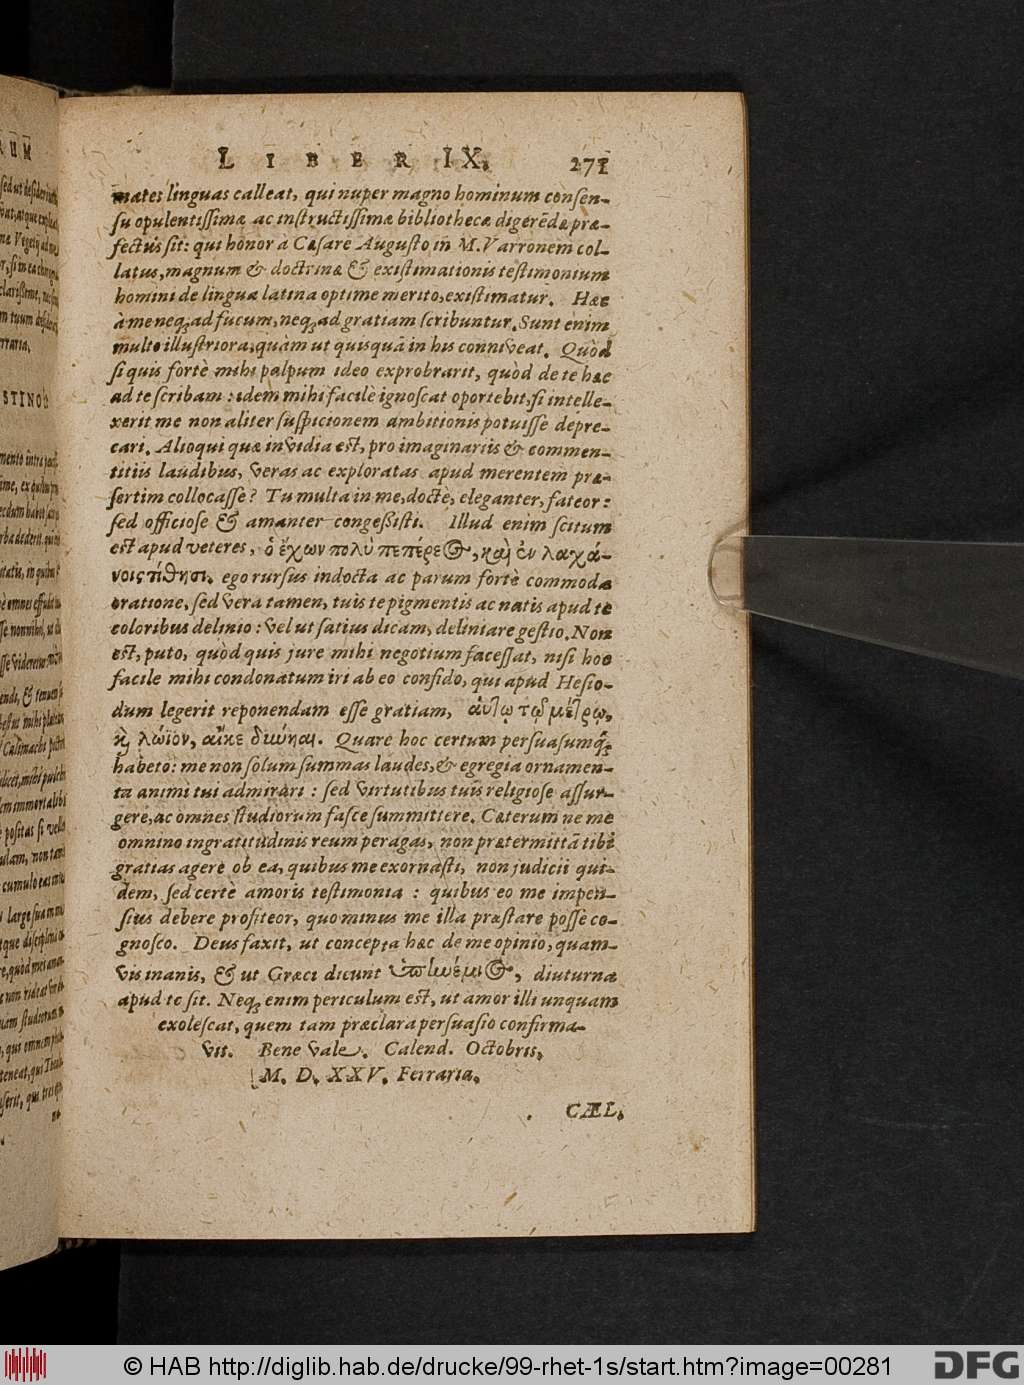 LIBER IX. 271
mates linguas calleat, qui nuper magno hominum consen-
su opulentissimæ ac instructissimæ bibliothecæ digerēdæ præ-
fectus sit: qui honor à Cæsare Augusto in M. Varronem col-
latus, magnum & doctrinæ & existimationis testimonium
homini de lingua latina optime merito, existimatur. Hæc
à me neq; ad fucum, neq; ad gratiam scribuntur. Sunt enim
multo illustriora, quàm ut quisquā in his conniveat. Quòd
si quis fortè mihi palpum ideo exprobrarit, quòd de te hæc
ad te scribam: idem mihi facilè ignoscat oportebit, si intelle-
xerit me non aliter suspicionem ambitionis potuisse depre-
cari. Alioqui quæ invidia est, pro imaginariis & commen-
titiis laudibus, veras ac exploratas apud merentem præ-
sertim collocasse? Tu multa in me, doctè, eleganter, fateor:
sed officiose & amanter congeßisti. Illud enim scitum
est apud veteres, ὁ ἔχων πολὺ πεπέρεος, καὶ ἐν λαχά-
νοις τίθησι. ego rursus indocta ac parum fortè commoda
oratione, sed vera tamen, tuis te pigmentis ac natis apud te
coloribus delinio: vel ut satius dicam, deliniare gestio. Non
est, puto, quòd quis jure mihi negotium facessat, nisi hoc
facile mihi condonatum iri ab eo confido, qui apud Hesio-
dum legerit reponendam esse gratiam, αὐτῷ τῷ μέτρῳ,
κ̀ λώϊον, αἴκε δύνηαι. Quare hoc certum persuasumq́;
habeto: me non solum summas laudes, & egregia ornamen-
ta animi tui admirari: sed virtutibus tuis religiose assur-
gere, ac omnes studiorum fasce summittere. Cæterum ne me
omnino ingratitudinis reum peragas, non prætermittā tibi
gratias agere ob ea, quibus me exornasti, non judicii qui-
dem, sed certè amoris testimonia: quibus eo me impen-
sius debere profiteor, quo minus me illa præstare posse co-
gnosco. Deus faxit, ut concepta hæc de me opinio, quam-
vis inanis, & ut Græci dicunt ὑπηνέμιος, diuturna
apud te sit. Neq; enim periculum est, ut amor illi unquam
exolescat, quem tam præclara persuasio confirma-
vit. Bene vale. Calend. Octobris,
M. D. XXV. Ferraria.
CÆL.
© HAB http://diglib.hab.de/drucke/99-rhet-1s/start.htm?image=00281
DFG